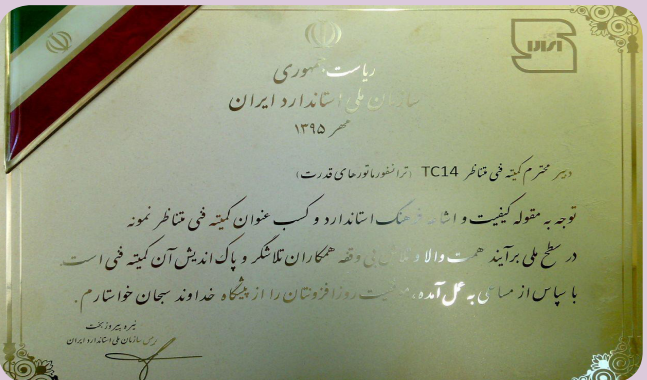 ریاست جمهوری
سازمان ملی استاندارد ایران
مهر ۱۳۹۵
دبیر محترم کمیته فنی متناظر TC14 (ترانسفورماتورهای قدرت)
توجه به مقوله کیفیت و اشاعه فرهنگ استاندارد و کسب عنوان کمیته فنی متناظر نمونه
در سطح ملی برآیند همت والا و تلاش بی وقفه همکاران تلاشگر و پاک اندیش آن کمیته فنی است
با سپاس از مساعی به عمل آمده، موفقیت روزافزونتان را از پیشگاه خداوند سبحان خواستارم.
نیره پیروزبخت
رئیس سازمان ملی استاندارد ایران